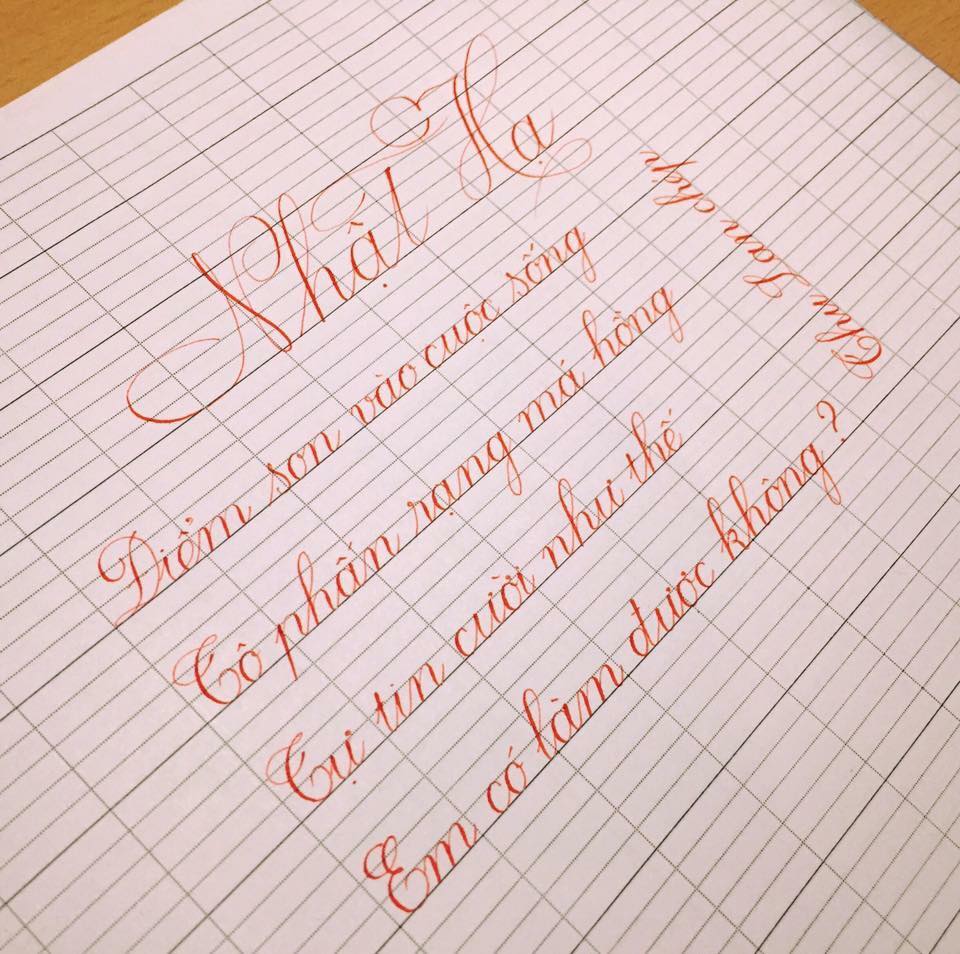 Nhật Hạ
Điểm son vào cuộc sống
Tô phấn rạng má hồng
Tự tin cười như thế
Em có làm được không?
Thu Lan chép